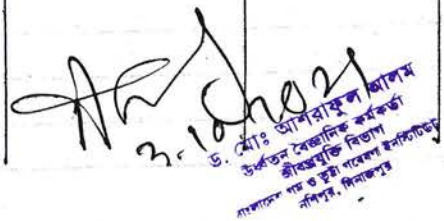 ড. মোঃ আশরাফুল আলম
উর্ধ্বতন বৈজ্ঞানিক কর্মকর্তা
জীবপ্রযুক্তি বিভাগ
বাংলাদেশ গম ও ভুট্টা গবেষণা ইনস্টিটিউট
নশিপুর, দিনাজপুর